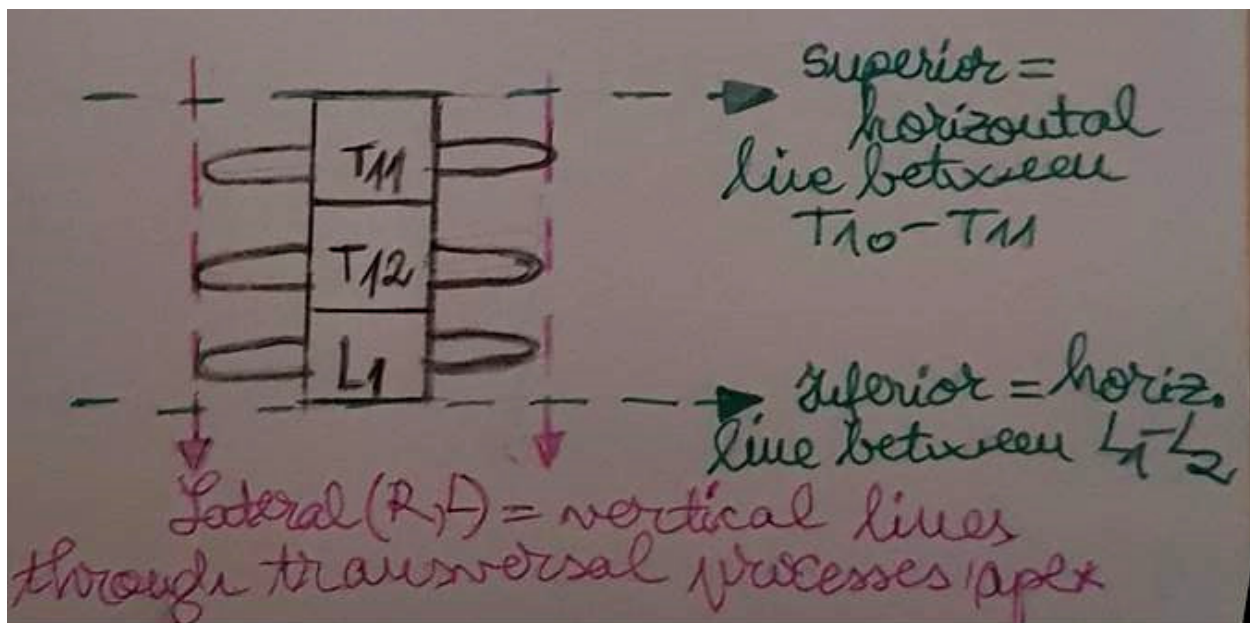 superior =
horizontal
line between
T10-T11
T11
T12
L1
Inferior = horiz.
line between L1-L2
Lateral (R, L) = vertical lines
through transversal processes' apex